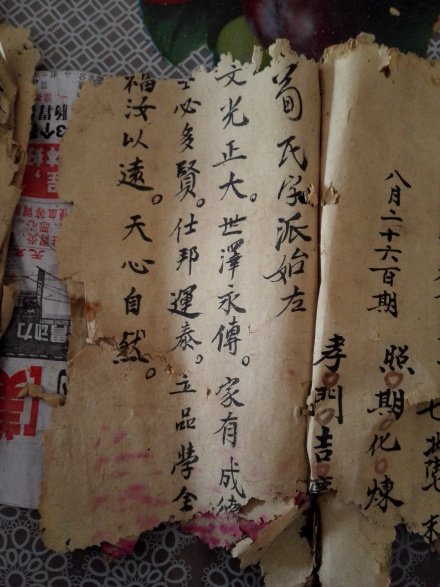 八月二十六百期 照期化煉
孝門吉
荀民字派始左
文光正大。世澤永傳。家有成德
必多賢。仕邦運泰。立品學全
福汝以遠。天心自然。
动力